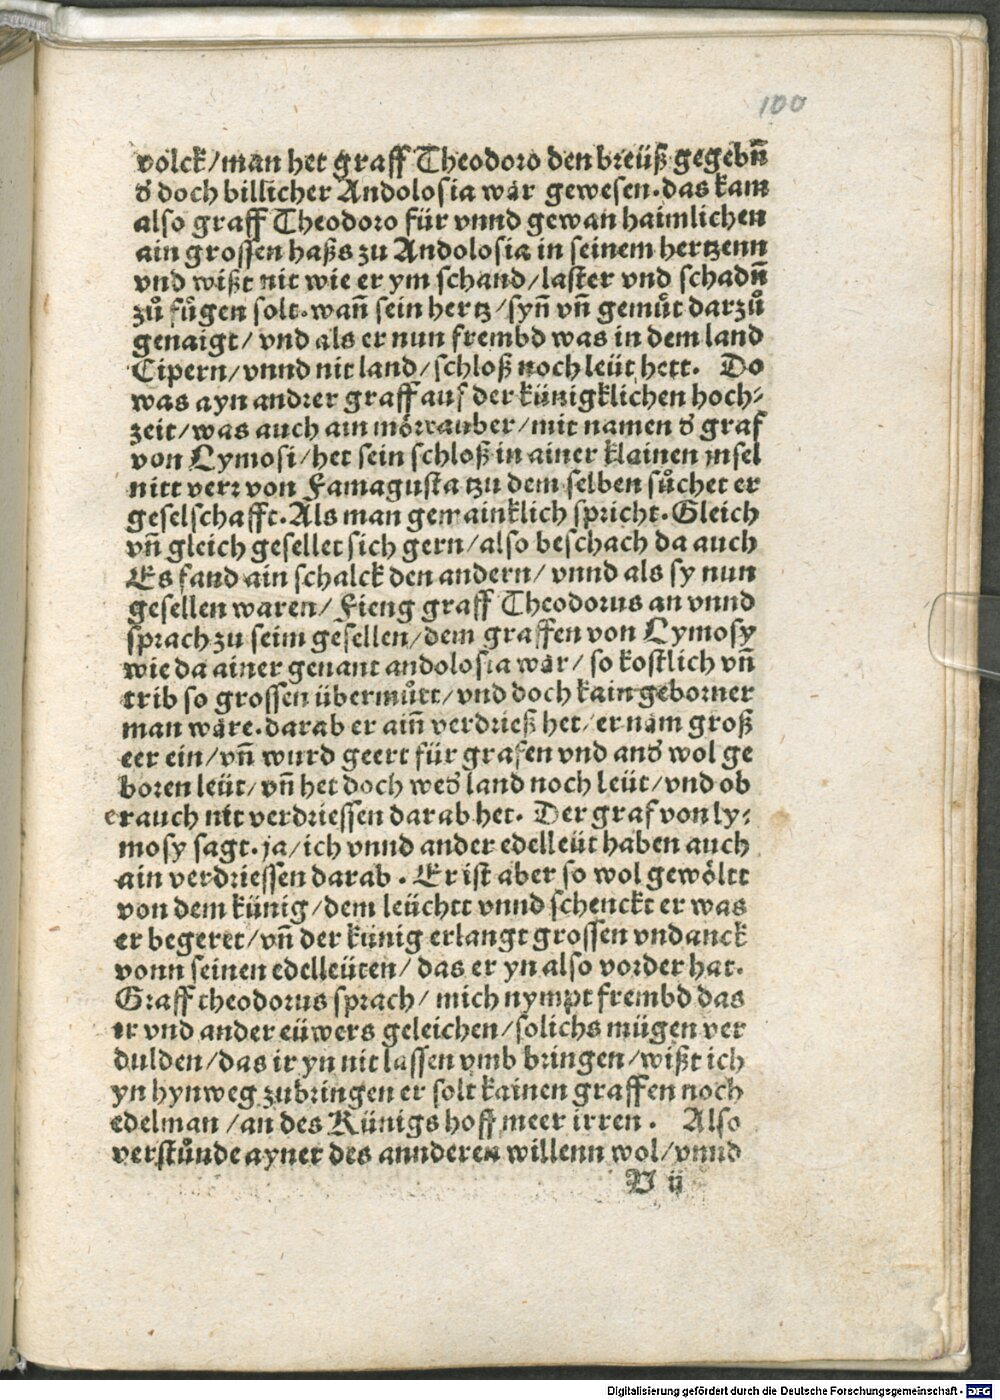 100
volck/man het graff Theodoro den breüß gegebñ
ds doch billicher Andolosia wär gewesen.das kam
also graff Theodoro für vnnd gewan haimlichen
ain grossen haßs zu Andolosia in seinem hertzenn
vnd wißt nit wie er ym schand/laster vnd schadñ
zů fůgen solt.wañ sein hertz/syñ vñ gemůt darzů
genaigt/ vnd als er nun frembd was in dem land
Cipern/vnnd nit land/schloß noch leüt hett. Do
was ayn andrer graff auf der künigklichen hoch⸗
zeit/was auch ain mörrauber/mit namen ds graf
von Lymosi/het sein schloß in ainer klainen insel
nitt verr von Famagusta tzu dem selben sůchet er
geselschafft.Als man gemainklich spricht.Gleich
vñ gleich gesellet sich gern/also beschach da auch
Es fand ain schalck den andern/ vnnd als sy nun
gesellen waren/ Fieng graff Theodorus an vnnd
sprach zu seim gesellen/dem graffen von Lymosy
wie da ainer genant andolosia wär/ so kostlich vñ
trib so grossen übermůtt/vnd doch kain geborner
man wäre.darab er aiñ verdrieß het/er näm groß
eer ein/vñ wurd geert für grafen vnd ands wol ge
boren leüt/vñ het doch weds land noch leüt/vnd ob
er auch nit verdriessen darab het. Der graf von ly⸗
mosy sagt.ja/ich vnnd ander edelleüt haben auch
ain verdriessen darab . Er ist aber so wol gewöltt
von dem künig/dem leüchtt vnnd schenckt er was
er begeret/vñ der künig erlangt grossen vndanck
vonn seinen edelleüten/ das er yn also vorder hat.
Graff theodorus sprach/ mich nympt frembd das
ir vnd ander eüwers geleichen/solichs mügen ver
dulden/das ir yn nit lassen vmb bringen/wißt ich
yn hynweg zubringen er solt kainen graffen noch
edelman /an des Künigs hoff meer irren . Also
verstůnde ayner des annderen willenn wol/vnnd
V ij
Digitalisierung gefördert durch die Deutsche Forschungsgemeinschaft - DFG